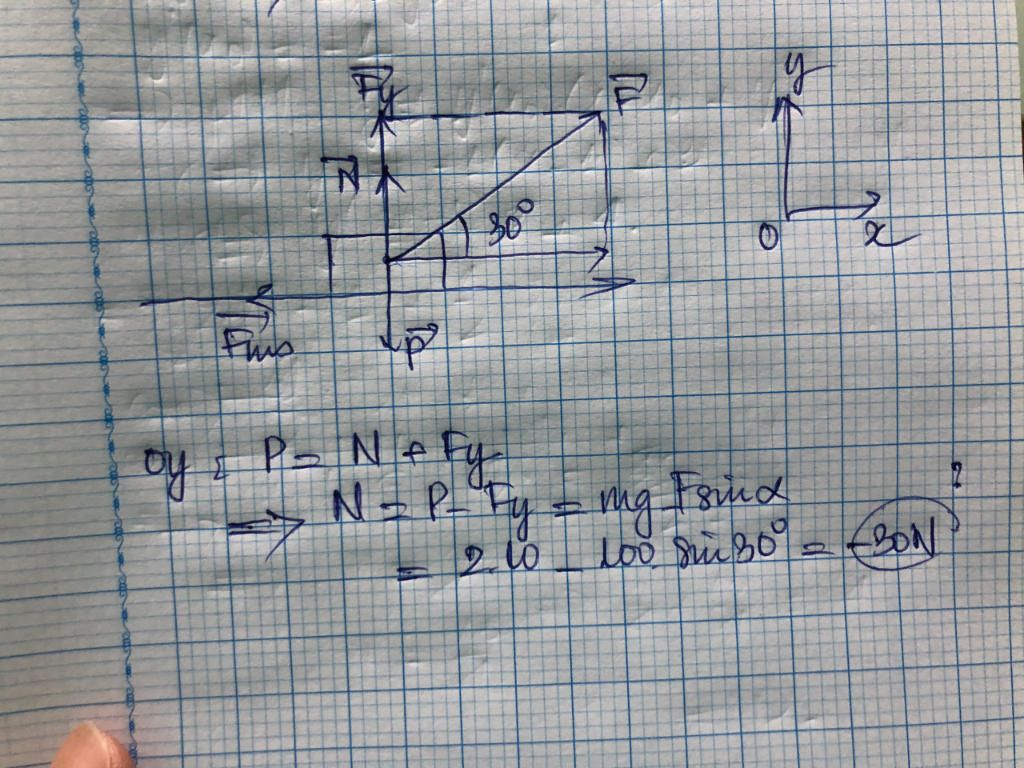 Fy F y
N
30°
O x
Fms P
Oy : P = N + Fy
?
=> N = P - Fy = mg - Fsinα
= 2.10 - 100. sin30° = -30N